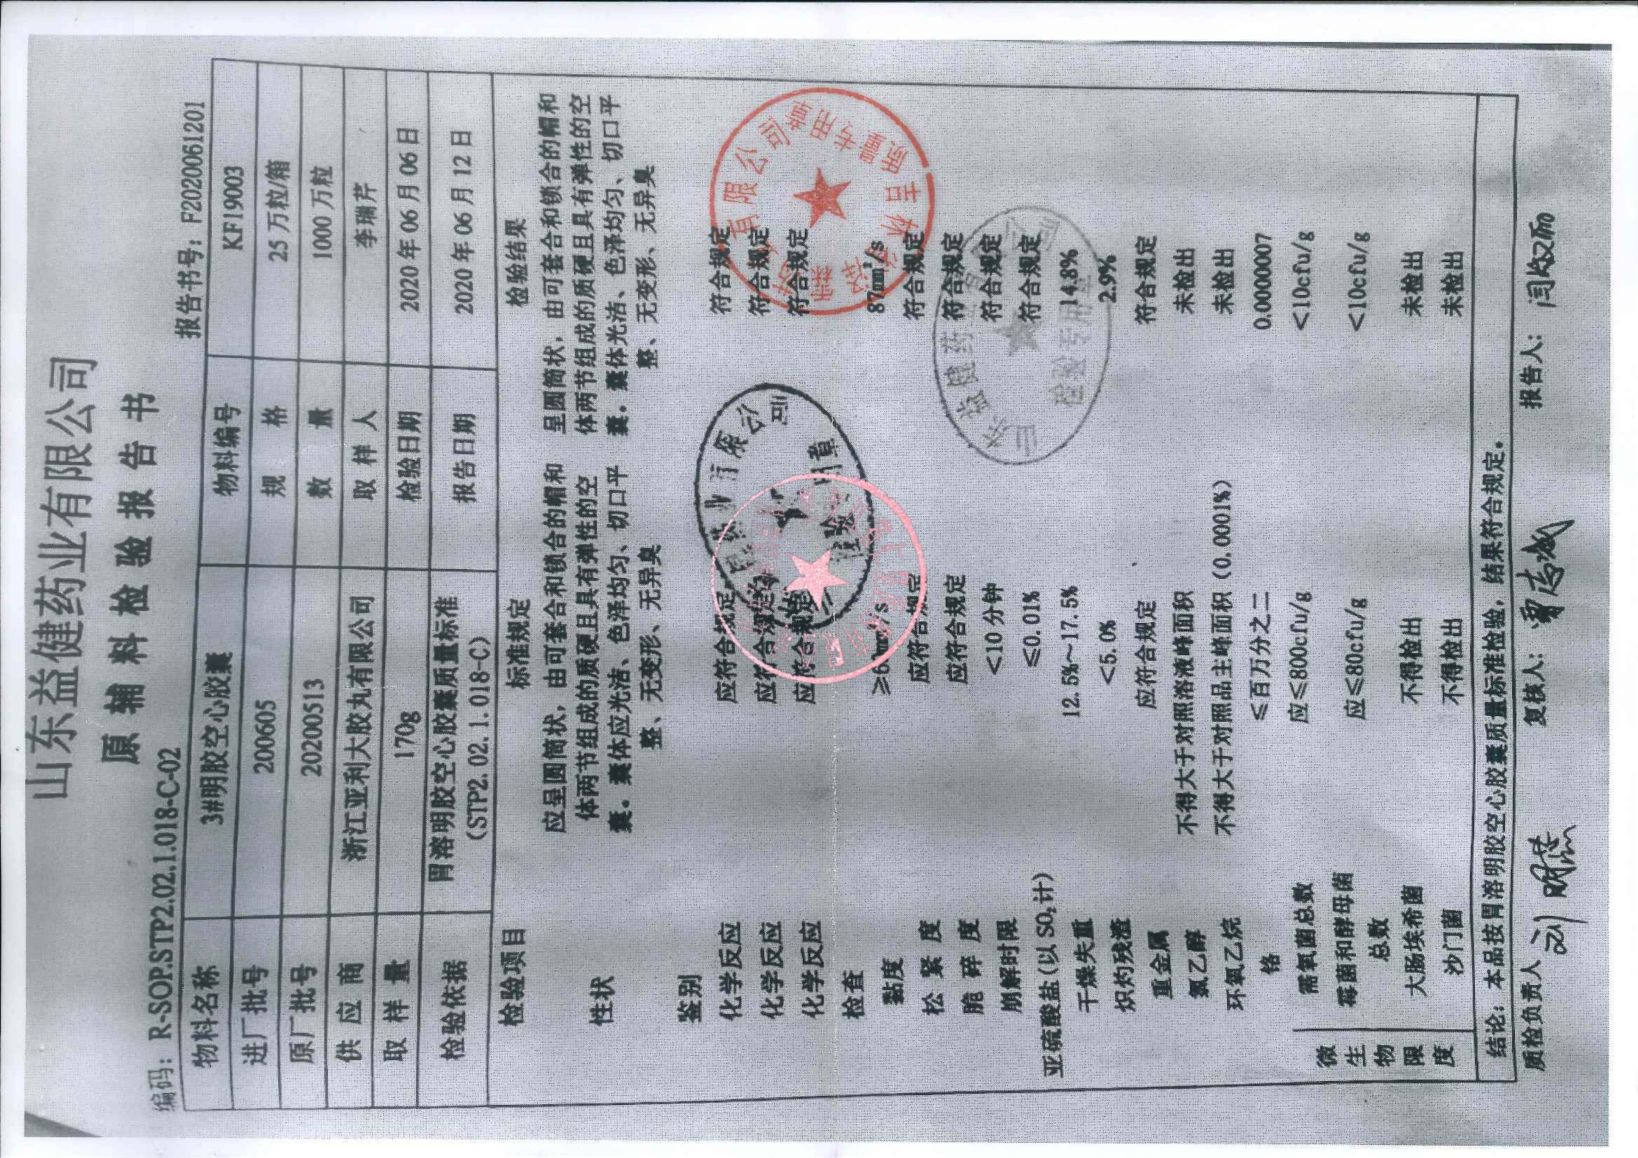 山东益健药业有限公司
原辅料检验报告书
编码：R-SOP.STP2.02.1.018-C-02 报告书号：F2020061201
物料名称 3#明胶空心胶囊 物料编号 KF19003
进厂批号 200605 规格 25万粒/箱
原厂批号 20200513 数量 1000万粒
供应商 浙江亚利大胶丸有限公司 取样人 李瑞芹
取样量 170g 检验日期 2020年06月06日
检验依据 胃溶明胶空心胶囊质量标准 报告日期 2020年06月12日
(STP2.02.1.018-C)
检验项目 标准规定 检验结果
性状 应呈圆筒状，由可套合和锁合的帽和 呈圆筒状，由可套合和锁合的帽和
体两节组成的质硬且具有弹性的空 体两节组成的质硬且具有弹性的空
囊。囊体应光洁、色泽均匀、切口平 囊。囊体光洁、色泽均匀、切口平
整、无变形、无异臭 整、无变形、无异臭
鉴别
化学反应 应符合规定 符合规定
化学反应 应符合规定 符合规定
化学反应 应符合规定 符合规定
检查
黏度 ≥60mm²/s 87mm²/s
松紧度 应符合规定 符合规定
脆碎度 应符合规定 符合规定
崩解时限 <10分钟 符合规定
亚硫酸盐(以SO₂计) ≤0.01% 符合规定
干燥失重 12.5%～17.5% 14.8%
炽灼残渣 <5.0% 2.9%
重金属 应符合规定 符合规定
氯乙醇 不得大于对照溶液峰面积 未检出
环氧乙烷 不得大于对照品主峰面积（0.0001%） 未检出
铬 ≤百万分之二 0.0000007
微生物限度 需氧菌总数 应≤800cfu/g <10cfu/g
霉菌和酵母菌总数 应≤80cfu/g <10cfu/g
大肠埃希菌 不得检出 未检出
沙门菌 不得检出 未检出
结论：本品按胃溶明胶空心胶囊质量标准检验，结果符合规定。
质检负责人 复核人： 报告人：
山东益健药业有限公司
检验专用章